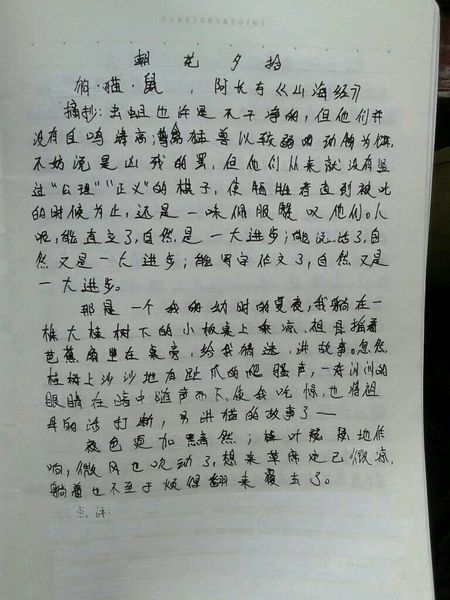 OURSTORYBEGINS
朝花夕拾
狗·猫·鼠,阿长与《山海经》
摘抄:虫蛆也许是不干净的,但他们并
没有自鸣清高;鸷禽猛兽以较弱的动物为饵,
不妨说是凶残的罢,但他们从来就没有竖
过“公理”“正义”的棋子,使牺牲者直到被吃
的时候为止,还是一味佩服赞叹他们。人
呢,能直立了,自然是一大进步;能说话了,自
然又是一大进步;能写字作文了,自然又是
一大进步。
那是一个我的幼时的夏夜,我躺在一
株大桂树下的小板桌上乘凉,祖母摇着
芭蕉扇坐在桌旁,给我猜迷,讲故事。忽然,
桂树上沙沙地有趾爪的爬搔声,一对闪闪的
眼睛在暗中随声而下,使我吃惊,也将祖
母的话打断,另讲猫的故事了——
夜色更加黯然;桂叶瑟瑟地作
响,微风也吹动了,想来草席定已微凉,
躺着也不至于烦得翻来覆去了。
点评: